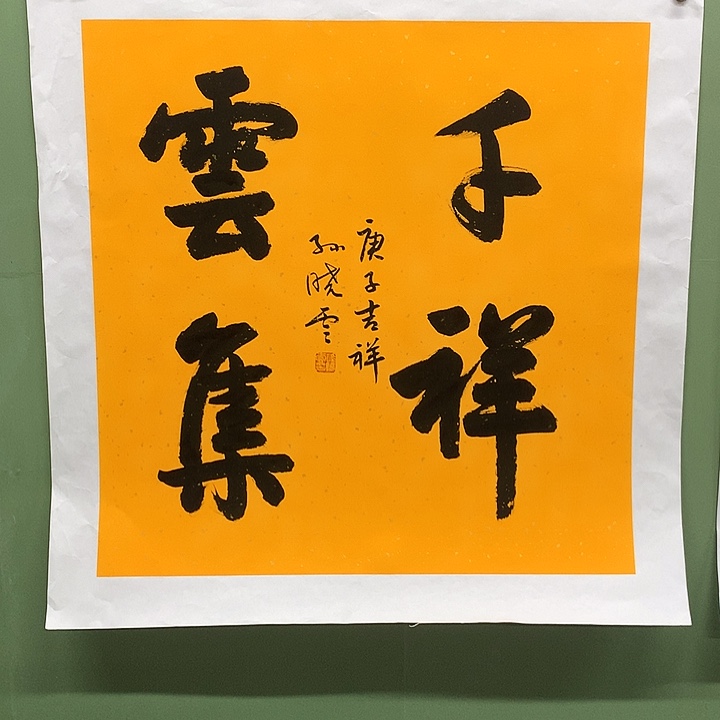 千祥
雲集
庚子吉祥
孙晓雲